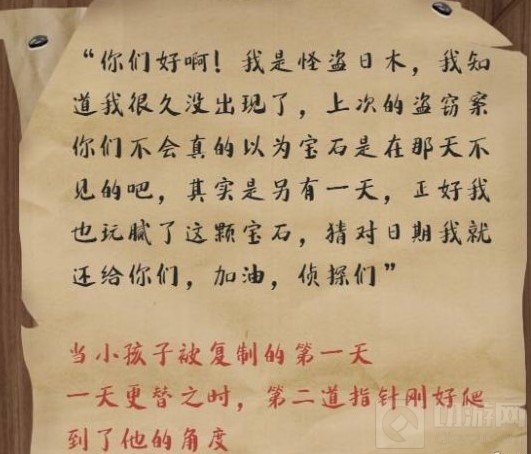 “你们好啊！我是怪盗日木，我知
道我很久没出现了，上次的盗窃案
你们不会真的以为宝石是在那天不
见的吧，其实是另有一天，正好我
也玩腻了这颗宝石，猜对日期我就
还给你们，加油，侦探们”
当小孩子被复制的第一天
一天更替之时，第二道指针刚好爬
到了他的角度
叩游网